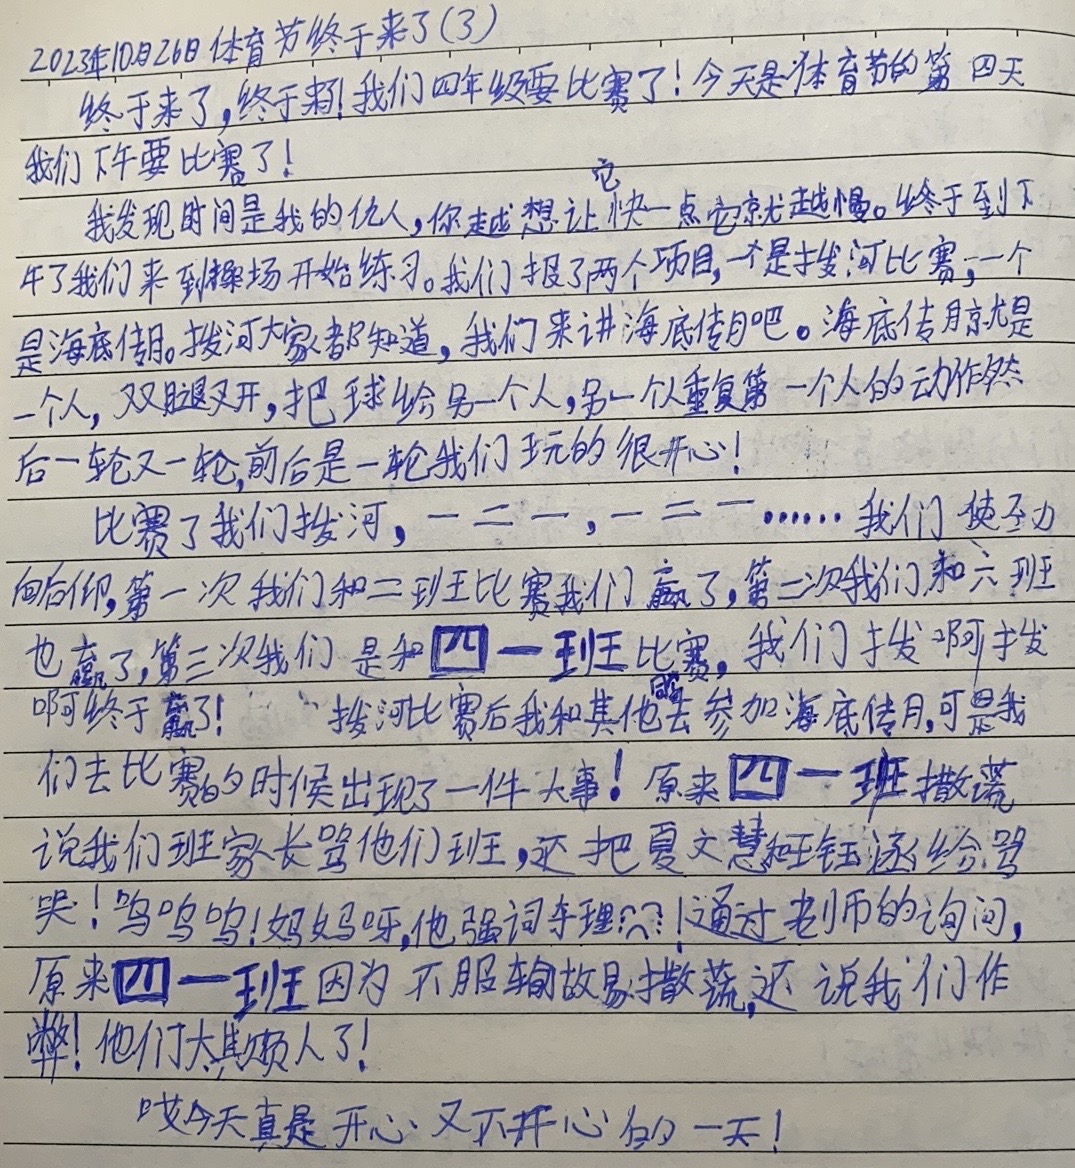 2023年10月26日体育节终于来了(3)
终于来了,终于来了!我们四年级要比赛了!今天是体育节的第四天
我们下午要比赛了!
我发现时间是我的仇人,你越想让它快一点它就越慢。终于到下
午了我们来到操场开始练习。我们报了两个项目,一个是拨河比赛,一个
是海底传月。拨河大家都知道,我们来讲海底传月吧。海底传月就是
一个人,双腿叉开,把球给另一个人,另一个人重复第一个人的动作然
后一轮又一轮,前后是一轮我们玩的很开心!
比赛了我们拨河,一二一,一二一……我们使劲力
向后仰,第一次我们和二班比赛我们赢了,第二次我们和六班
也赢了,第三次我们是和四一班比赛,我们拨啊拨
啊终于赢了! 拨河比赛后我和其他同去参加海底传月,可是我
们去比赛的时候出现了一件大事!原来四一班撒谎
说我们班家长骂他们班,还把夏文慧和王钰涵给骂
哭!呜呜呜!妈妈呀,他强词夺理??!通过老师的询问,
原来四一班因为不服输故易撒谎,还说我们作
弊!他们太欺人了!
哎今天真是开心又不开心的一天!